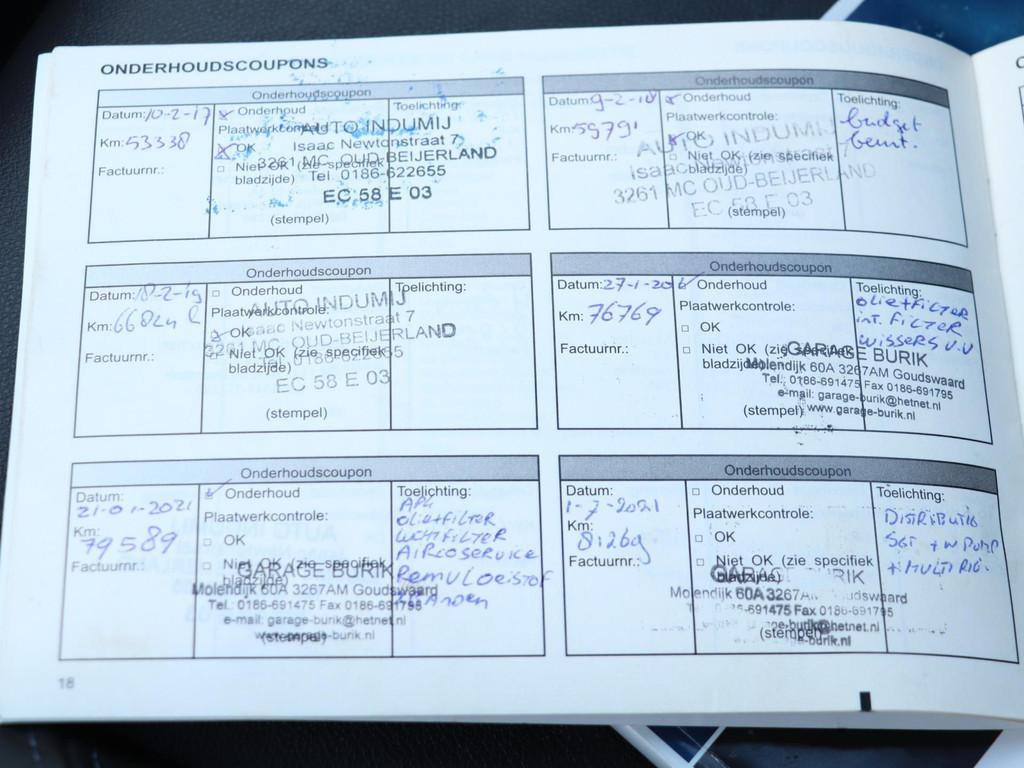 ONDERHOUDSCOUPONS
Onderhoudscoupon
Datum: 10-2-17
Km: 53338
Factuurnr.:
Onderhoud
Plaatwerkcontrole:
OK
Niet OK (zie specifiek
bladzijde)
(stempel)
Toelichting:
AUTO INDUMIJ
Isaac Newtonstraat 7
3261 MC OUD-BEIJERLAND
Tel. 0186-622655
EC 58 E 03
Onderhoudscoupon
Datum: 9-2-18
Km: 59791
Factuurnr.:
Onderhoud
Plaatwerkcontrole:
OK
Niet OK (zie specifiek
bladzijde)
(stempel)
Toelichting:
budget
beurt.
AUTO INDUMIJ
Isaac Newtonstraat 7
3261 MC OUD-BEIJERLAND
EC 58 E 03
Onderhoudscoupon
Datum: 18-2-19
Km:
Factuurnr.:
Onderhoud
Plaatwerkcontrole:
OK
Niet OK (zie specifiek
bladzijde)
(stempel)
Toelichting:
AUTO INDUMIJ
Isaac Newtonstraat 7
3261 MC OUD-BEIJERLAND
Tel. 0186-622655
EC 58 E 03
Onderhoudscoupon
Datum: 27-1-20
Km: 76769
Factuurnr.:
Onderhoud
Plaatwerkcontrole:
OK
Niet OK (zie specifiek
bladzijde)
(stempel)
Toelichting:
olie+FilTER
int. FilTER
WISSERS V.V
GARAGE BURIK
Molendijk 60A 3267AM Goudswaard
Tel.: 0186-691475 Fax 0186-691795
e-mail: garage-burik@hetnet.nl
www.garage-burik.nl
Onderhoudscoupon
Datum:
21-01-2021
Km:
79589
Factuurnr.:
Onderhoud
Plaatwerkcontrole:
OK
Niet OK (zie specifiek
bladzijde)
(stempel)
Toelichting:
APK
olie+FilTER
LUCHTFILTER
AIRCOSERVICE
Remvloeistof
GARAGE BURIK
Molendijk 60A 3267AM Goudswaard
Tel.: 0186-691475 Fax 0186-691795
e-mail: garage-burik@hetnet.nl
www.garage-burik.nl
Onderhoudscoupon
Datum:
1-7-2021
Km:
81269
Factuurnr.:
Onderhoud
Plaatwerkcontrole:
OK
Niet OK (zie specifiek
bladzijde)
(stempel)
Toelichting:
DISTRIBUTIE
SET + W POMP
+ MULTI RIE.
GARAGE BURIK
Molendijk 60A 3267AM Goudswaard
0186-691475 Fax 0186-691795
garage-burik@hetnet.nl
burik.nl
18